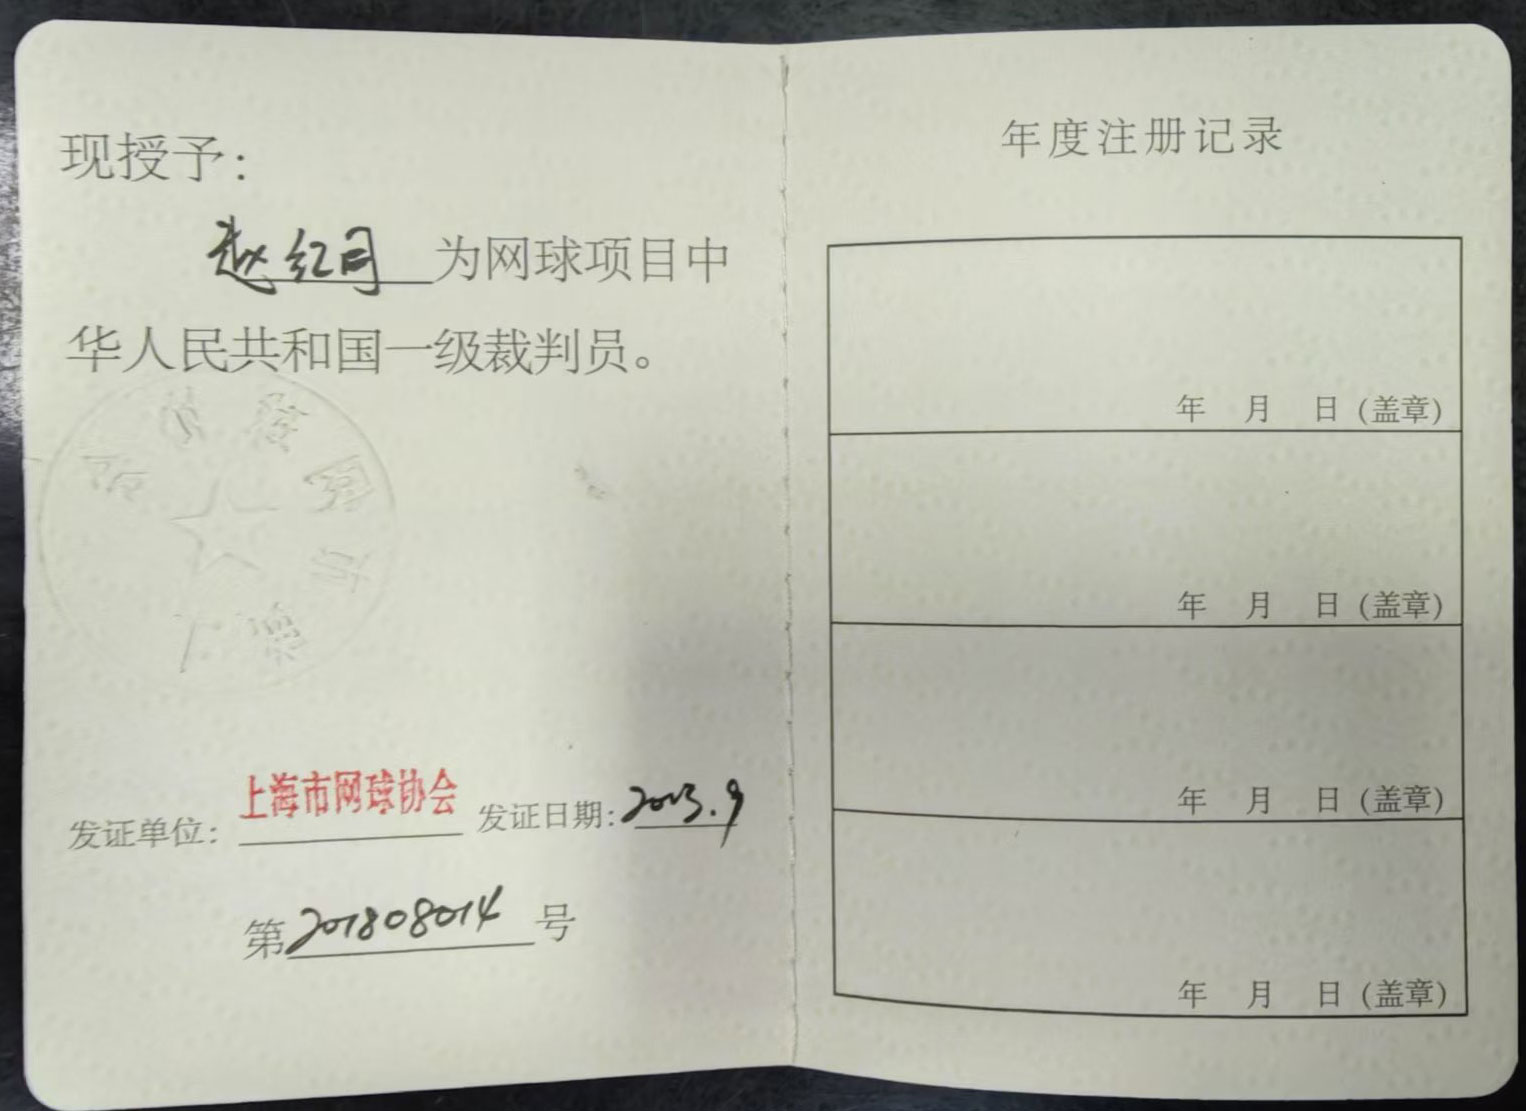 现授予：
赵红 为网球项目中
华人民共和国一级裁判员。
上海市网球协会
发证单位： 发证日期：2013.9
第201808014号
年度注册记录
年 月 日（盖章）
年 月 日（盖章）
年 月 日（盖章）
年 月 日（盖章）